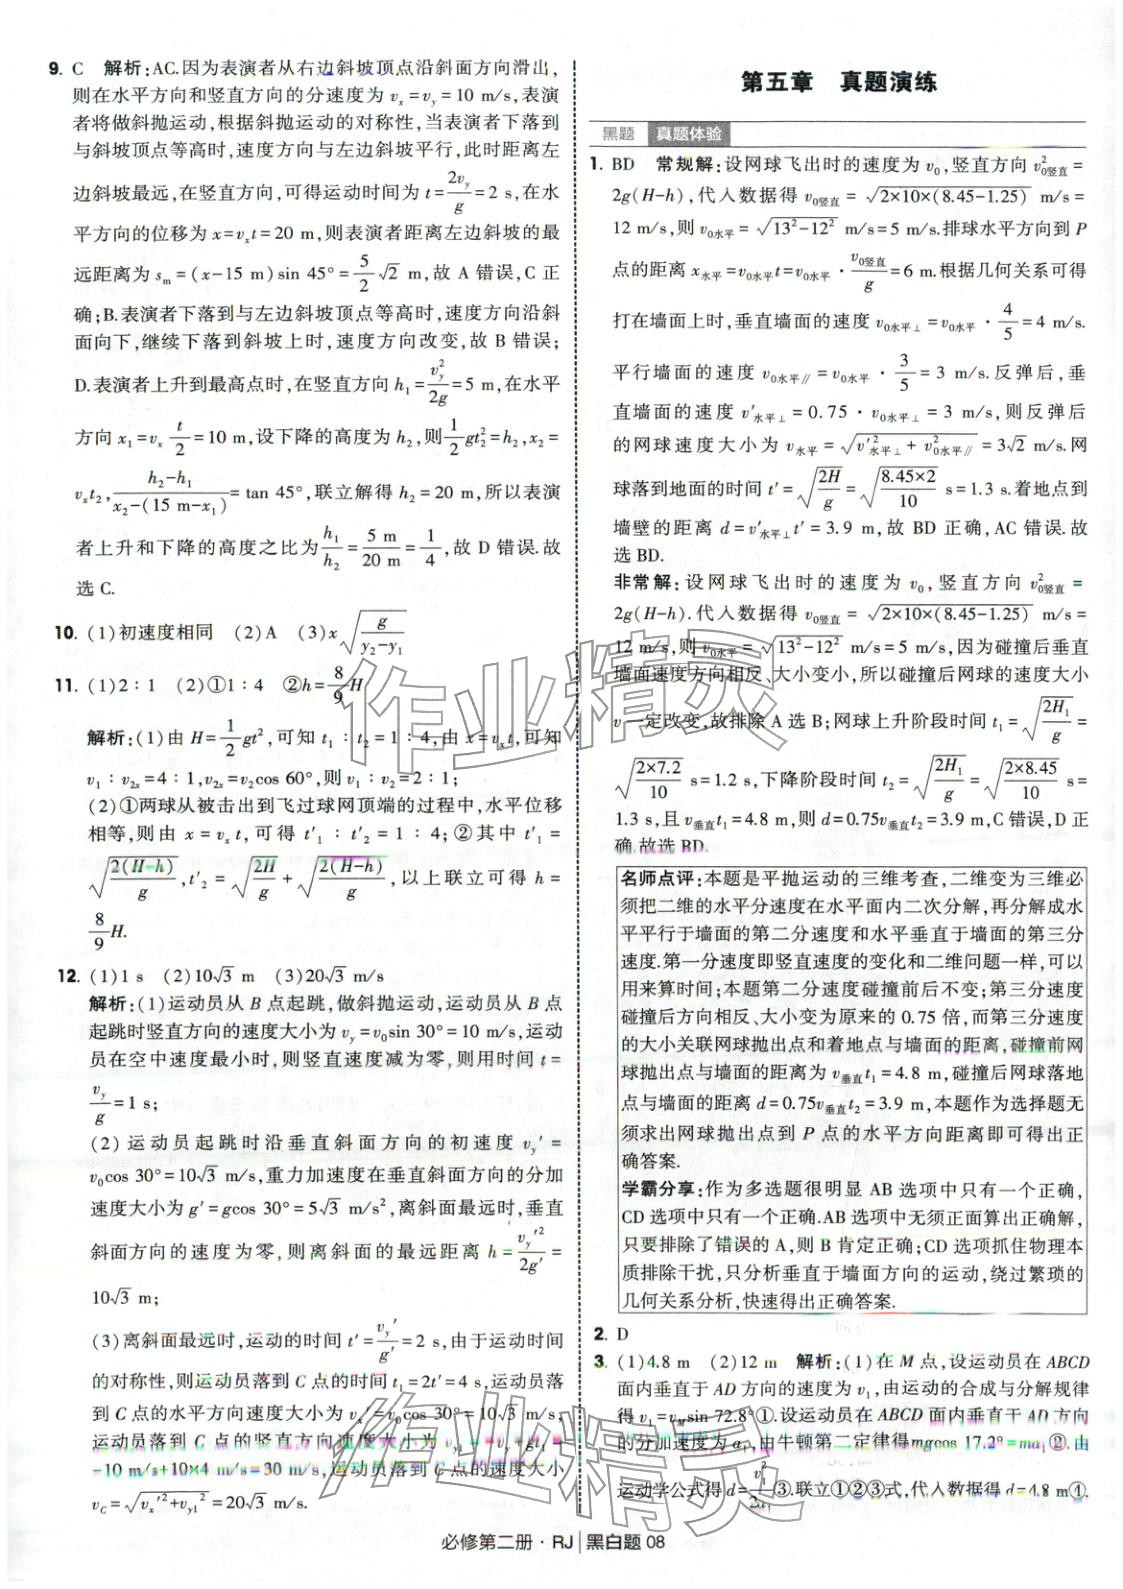 9. C 解析:AC.因为表演者从右边斜坡顶点沿斜面方向滑出,
则在水平方向和竖直方向的分速度为 vₓ=v_y=10 m/s,表演
者将做斜抛运动,根据斜抛运动的对称性,当表演者下落到
与斜坡顶点等高时,速度方向与左边斜坡平行,此时距离左
边斜坡最远,在竖直方向,可得运动时间为 t=2v_y/g=2 s,在水
平方向的位移为 x=vₓt=20 m,则表演者距离左边斜坡的最
远距离为 s_m=(x-15 m)sin 45°=5/2√2 m,故 A 错误,C 正
确;B.表演者下落到与左边斜坡顶点等高时,速度方向沿斜
面向下,继续下落到斜坡上时,速度方向改变,故 B 错误;
D.表演者上升到最高点时,在竖直方向 h₁=v_y²/2g=5 m,在水平
方向 x₁=vₓ t/2=10 m,设下降的高度为 h₂,则1/2gt₂²=h₂,x₂=
vₓt₂,(h₂-h₁)/(x₂-(15 m-x₁))=tan 45°,联立解得 h₂=20 m,所以表演
者上升和下降的高度之比为h₁/h₂=5 m/20 m=1/4,故 D 错误.故
选 C.
10. (1)初速度相同 (2)A (3)x√(g/(y₂-y₁))
11. (1)2∶1 (2)①1∶4 ②h=8/9H
解析:(1)由 H=1/2gt²,可知 t₁∶t₂=1∶4,由 x=vₓt,可知
v₁∶v₂ₓ=4∶1,v₂ₓ=v₂cos 60°,则 v₁∶v₂=2∶1;
(2)①两球从被击出到飞过球网顶端的过程中,水平位移
相等,则由 x=vₓt,可得 t′₁∶t′₂=1∶4;②其中 t′₁=
√(2(H-h)/g),t′₂=√(2H/g)+√(2(H-h)/g),以上联立可得 h=
8/9H.
12. (1)1 s (2)10√3 m (3)20√3 m/s
解析:(1)运动员从 B 点起跳,做斜抛运动,运动员从 B 点
起跳时竖直方向的速度大小为 v_y=v₀sin 30°=10 m/s,运动
员在空中速度最小时,则竖直速度减为零,则用时间 t=
v_y/g=1 s;
(2)运动员起跳时沿垂直斜面方向的初速度 v_y′=
v₀cos 30°=10√3 m/s,重力加速度在垂直斜面方向的分加
速度大小为 g′=gcos 30°=5√3 m/s²,离斜面最远时,垂直
斜面方向的速度为零,则离斜面的最远距离 h=v_y′²/2g′=
10√3 m;
(3)离斜面最远时,运动的时间 t′=v_y′/g′=2 s,由于运动时间
的对称性,则运动员落到 C 点的时间为 t₁=2t′=4 s,运动员落
到 C 点的水平方向速度大小为 vₓ′=v₀cos 30°=10√3 m/s,
运动员落到 C 点的竖直方向速度大小为 v_y1=-v_y+gt₁=
-10 m/s+10×4 m/s=30 m/s,运动员落到 C 点的速度大小
v_C=√(vₓ′²+v_y1²)=20√3 m/s.
第五章 真题演练
黑题 真题体验
1. BD 常规解:设网球飞出时的速度为 v₀,竖直方向 v²₀竖直=
2g(H-h),代入数据得 v₀竖直=√(2×10×(8.45-1.25)) m/s=
12 m/s,则 v₀水平=√(13²-12²)=5 m/s.排球水平方向到 P
点的距离 x水平=v₀水平t=v₀水平·v₀竖直/g=6 m.根据几何关系可得
打在墙面上时,垂直墙面的速度 v₀水平⊥=v₀水平·4/5=4 m/s.
平行墙面的速度 v₀水平∥=v₀水平·3/5=3 m/s.反弹后,垂
直墙面的速度 v′水平⊥=0.75·v₀水平⊥=3 m/s,则反弹后
的网球速度大小为 v水平=√(v′²水平⊥+v²₀水平∥)=3√2 m/s.网
球落到地面的时间 t′=√(2H/g)=√(8.45×2/10) s=1.3 s.着地点到
墙壁的距离 d=v′水平⊥t′=3.9 m,故 BD 正确,AC 错误.故
选 BD.
非常解:设网球飞出时的速度为 v₀,竖直方向 v²₀竖直=
2g(H-h).代入数据得 v₀竖直=√(2×10×(8.45-1.25)) m/s=
12 m/s,则 v₀水平=√(13²-12²)=5 m/s,因为碰撞后垂直
墙面速度方向相反、大小变小,所以碰撞后网球的速度大小
v 一定改变,故排除 A 选 B;网球上升阶段时间 t₁=√(2H₁/g)=
√(2×7.2/10) s=1.2 s,下降阶段时间 t₂=√(2H₁/g)=√(2×8.45/10) s=
1.3 s,且 v垂直t₁=4.8 m,则 d=0.75v垂直t₂=3.9 m,C 错误,D 正
确.故选 BD.
名师点评:本题是平抛运动的三维考查,二维变为三维必
须把二维的水平分速度在水平面内二次分解,再分解成水
平平行于墙面的第二分速度和水平垂直于墙面的第三分
速度.第一分速度即竖直速度的变化和二维问题一样,可以
用来算时间;本题第二分速度碰撞前后不变;第三分速度
碰撞后方向相反、大小变为原来的 0.75 倍,而第三分速度
的大小关联网球抛出点和着地点与墙面的距离,碰撞前网
球抛出点与墙面的距离为 v垂直t₁=4.8 m,碰撞后网球落地
点与墙面的距离 d=0.75v垂直t₂=3.9 m,本题作为选择题无
须求出网球抛出点到 P 点的水平方向距离即可得出正
确答案.
学霸分享:作为多选题很明显 AB 选项中只有一个正确,
CD 选项中只有一个正确.AB 选项中无须正面算出正确解,
只要排除了错误的 A,则 B 肯定正确;CD 选项抓住物理本
质排除干扰,只分析垂直于墙面方向的运动,绕过繁琐的
几何关系分析,快速得出正确答案.
2. D
3. (1)4.8 m (2)12 m 解析:(1)在 M 点,设运动员在 ABCD
面内垂直于 AD 方向的速度为 v₁,由运动的合成与分解规律
得 v₁=v_M sin 72.8°①.设运动员在 ABCD 面内垂直于 AD 方向
的分加速度为 a₁,由牛顿第二定律得mgcos 17.2°=ma₁②.由
运动学公式得 d=v₁²/2a₁③.联立①②③式,代入数据得 d=4.8 m④.
必修第二册·RJ 黑白题 08
作业精灵
作业精灵